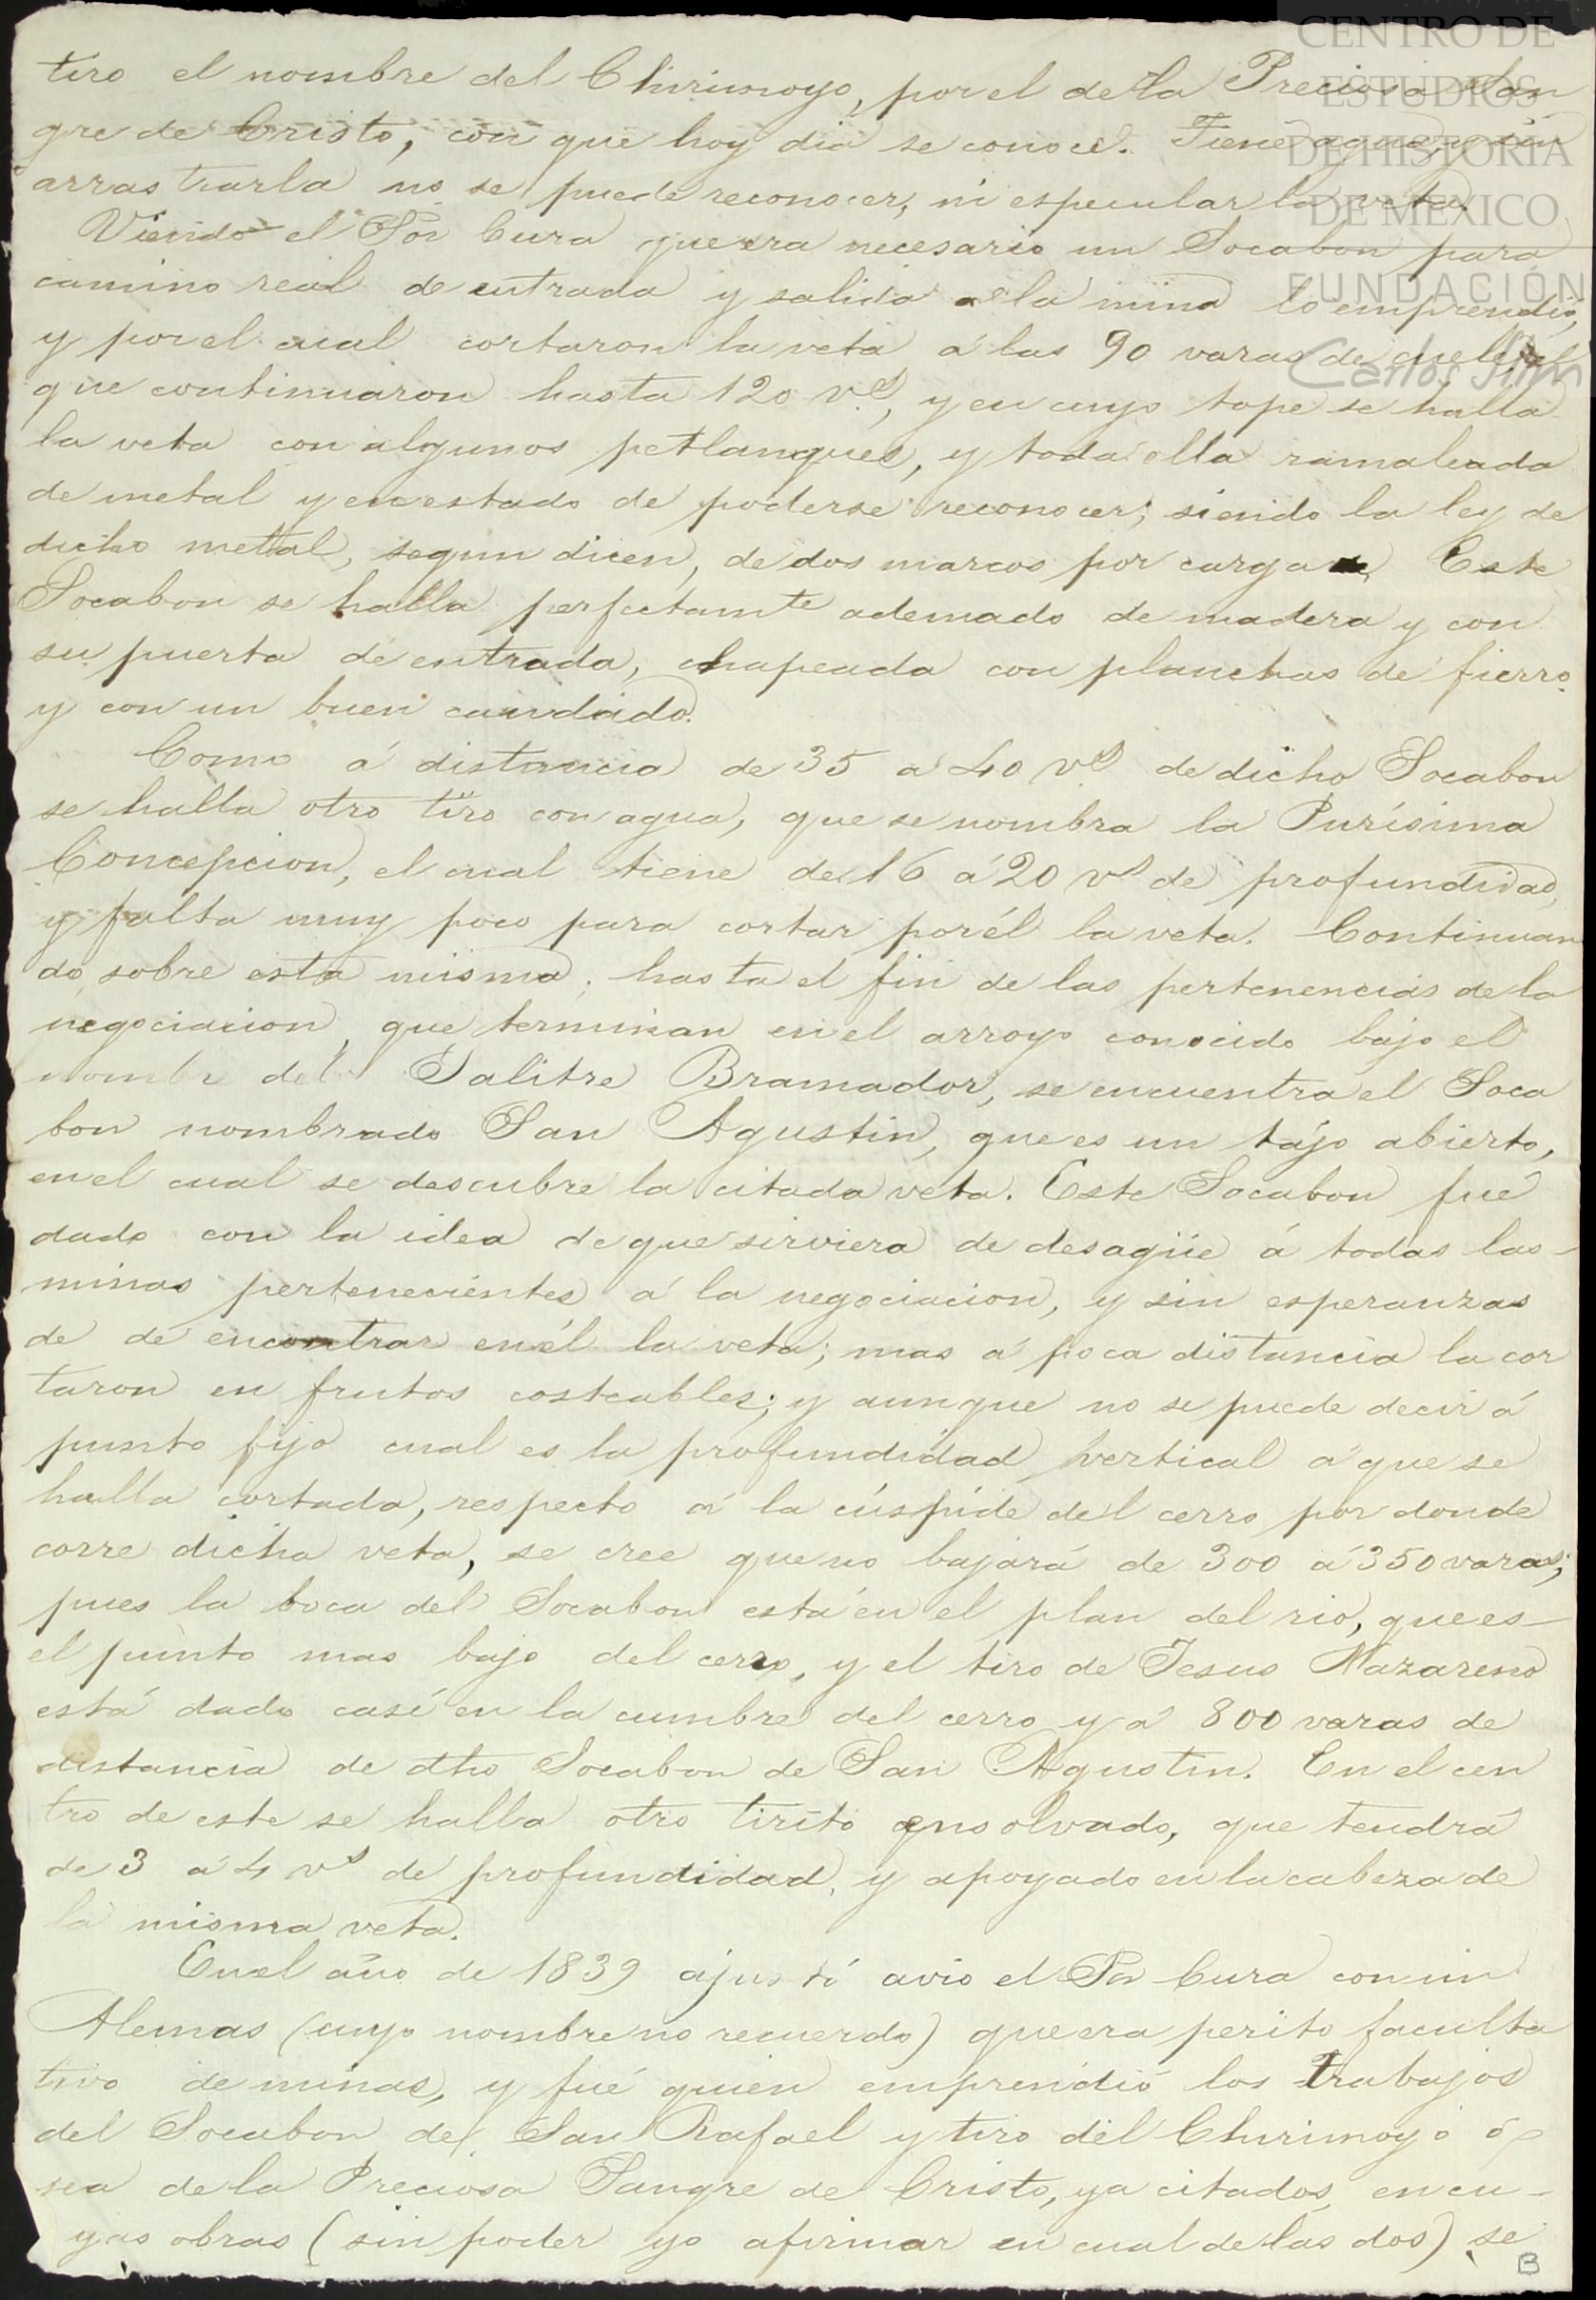 CENTRO DE
ESTUDIOS
DE HISTORIA
DE MEXICO
FUNDACIÓN
Carlos Slim
tiro el nombre del Chirimoyo, por el de la Preciosa San
gre de Cristo, con que hoy dia se conoce. Tiene agua, y sin
arrastrarla no se puede reconocer, ni especular la veta.
Viendo el Sor Cura que era necesario un Socabon para
camino real de entrada y salida a la mina lo emprendió,
y por el cual cortaron la veta á las 90 varas de
que continuaron hasta 120 vs, y en cuyo tope se halla
la veta con algunos petlanques, y toda ella ramaleada
de metal y en estado de poderse reconocer; siendo la ley de
dicho metal, segun dicen, de dos marcos por carga. Este
Socabon se halla perfectamte ademado de madera y con
su puerta de entrada, chapeada con planchas de fierro
y con un buen candado.
Como á distancia de 35 a 40 vs de dicho Socabon
se halla otro tiro con agua, que se nombra la Purísima
Concepcion, el cual tiene de 16 á 20 vs de profundidad,
y falta muy poco para cortar por él la veta. Continuan
do sobre esta misma, hasta el fin de las pertenencias de la
negociacion, que terminan en el arroyo conocido bajo el
nombre del Salitre Bramador, se encuentra el Soca
bon nombrado San Agustin, que es un tájo abierto,
en el cual se descubre la citada veta. Este Socabon fué
dado con la idea de que sirviera de desagüe á todas las
minas pertenecientes á la negociacion, y sin esperanzas
de de encontrar en él la veta; mas á poca distancia la cor
taron en frutos costeables; y aunque no se puede decir á
punto fijo cual es la profundidad vertical á que se
halla cortada, respecto á la cúspide del cerro por donde
corre dicha veta, se cree que no bajará de 300 á 350 varas;
pues la boca del Socabon está en el plan del rio, que es
el punto mas bajo del cerro, y el tiro de Jesus Nazareno
está dado casi en la cumbre del cerro y á 800 varas de
distancia de dho Socabon de San Agustin. En el cen
tro de este se halla otro tirito ensolvado, que tendrá
de 3 á 4 vs de profundidad, y apoyado en la cabeza de
la misma veta.
En el año de 1839 ajustó avio el Sor Cura con un
Aleman (cuyo nombre no recuerdo) que era perito faculta
tivo de minas, y fué quien emprendió los trabajos
del Socabon de San Rafael y tiro del Chirimoyo ó
sea de la Preciosa Sangre de Cristo, ya citados, en cu-
yas obras (sin poder yo afirmar en cual de las dos) se
B